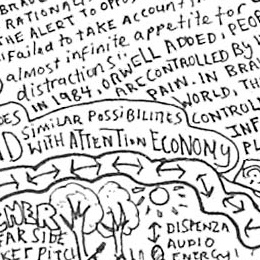 THE ALERT TO OPPO
"Failed to take account
almost infinite appetite for
distractions". 
IN 1984, ORWELL ADDED, PEOP
ARE CONTROLLED BY
PAIN. IN BRA
WORLD, TH
CONTROLL
INF
PL
SIMILAR POSSIBILITIES
WITH ATTENTION ECONONY
FAR SIDE
KET PITCH
DISPENZA
AUDIO
ENERGY!